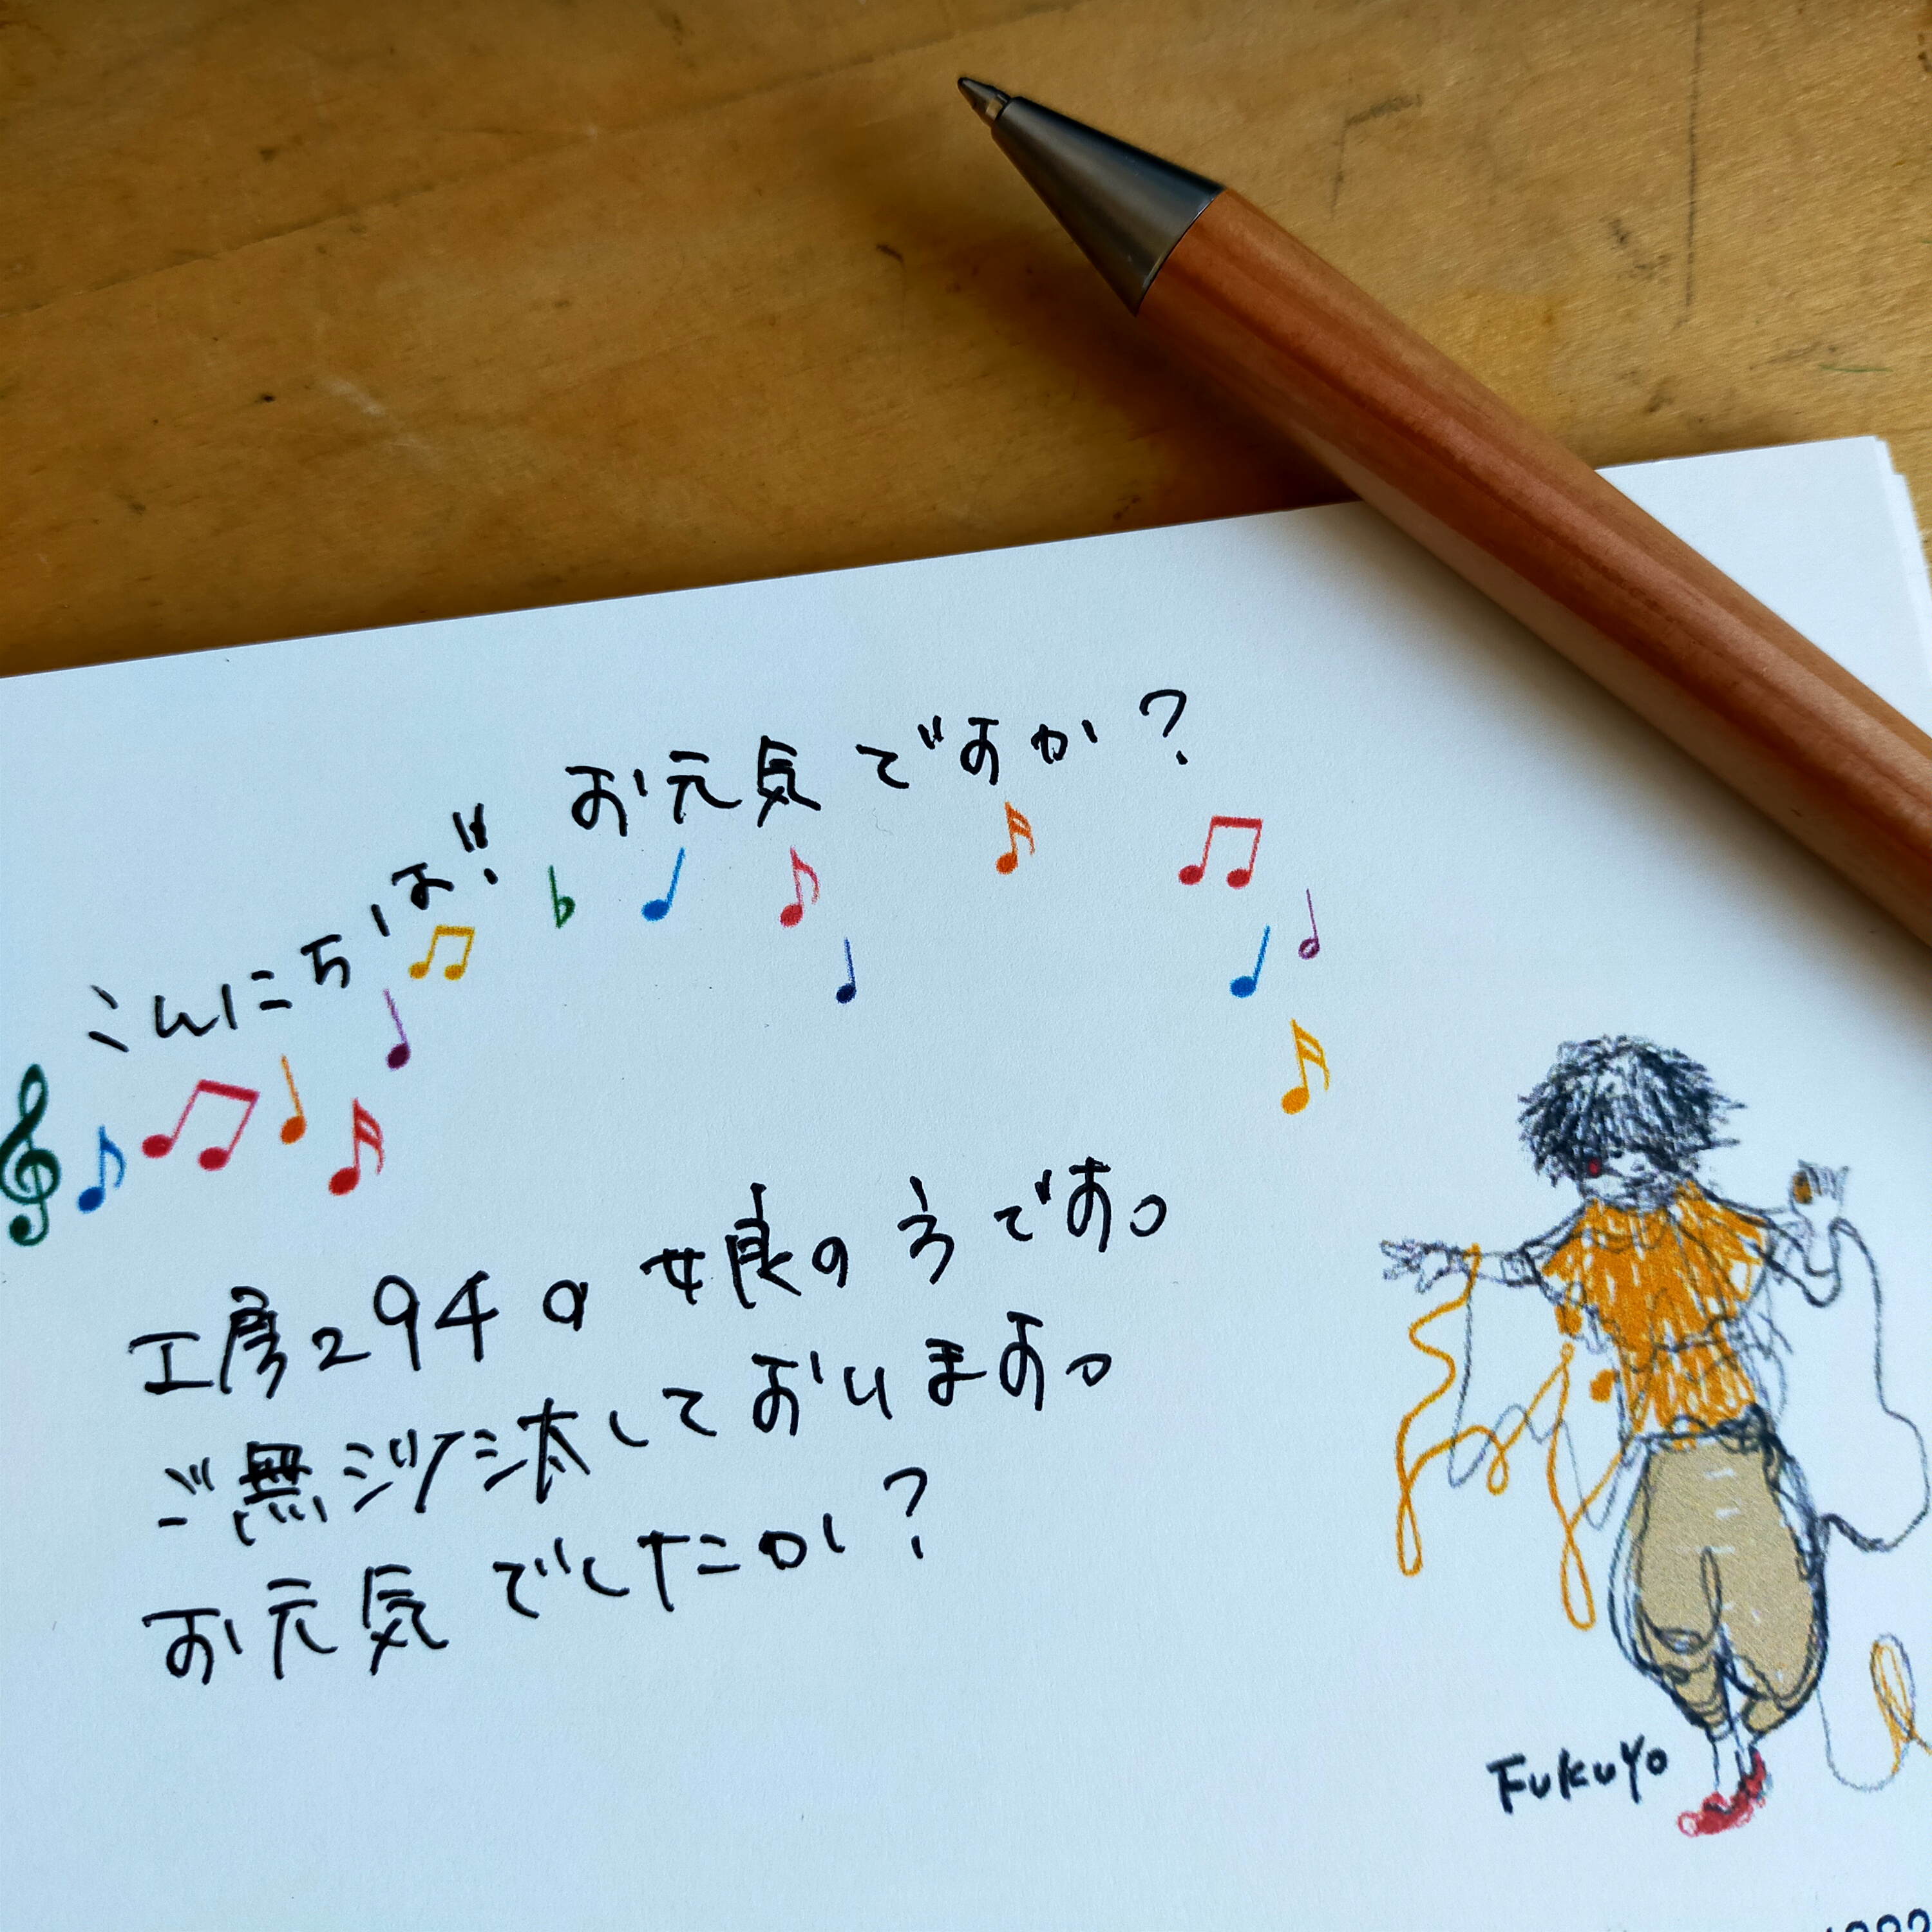 こんにちは!! お元気ですか?
工房294の娘の方です。
ご無沙汰しております。
お元気でしたか?
Fukuyo